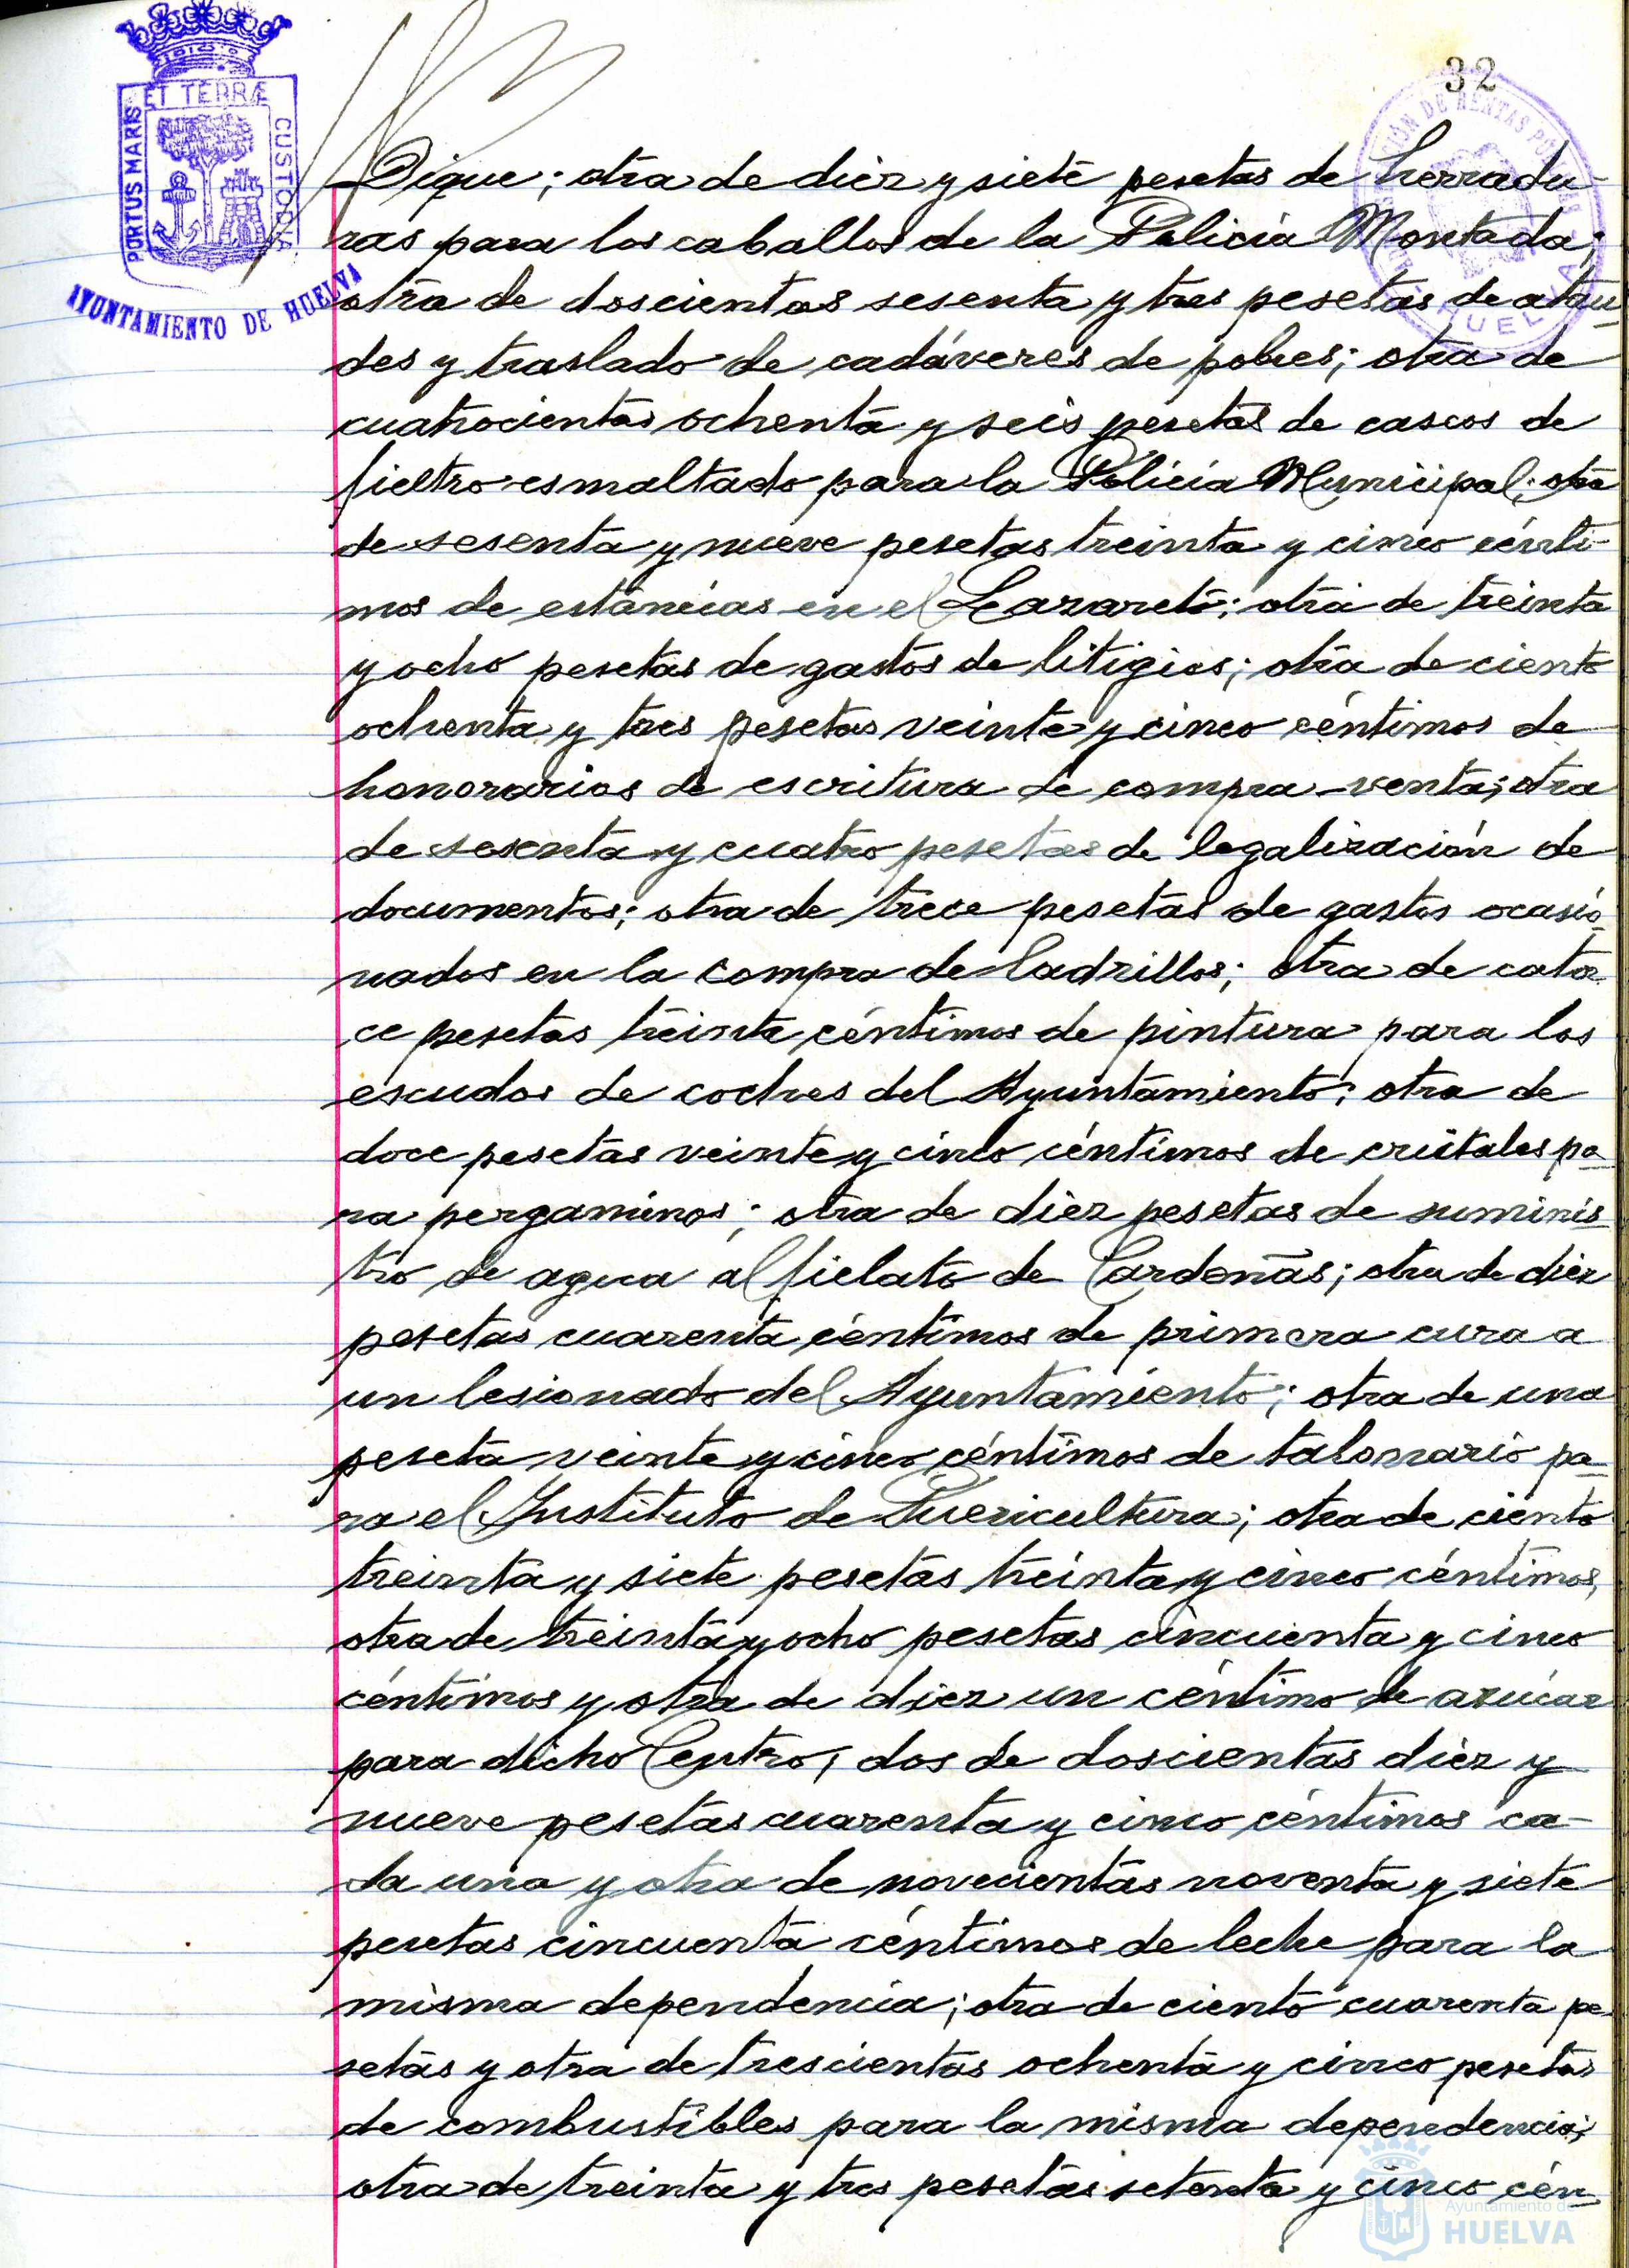 32
ET TERRÆ
PORTUS MARIS
CUSTODIA
AYUNTAMIENTO DE HUELVA
Dique; otra de diez y siete pesetas de herradu-
ras para los caballos de la Policia Montada;
otra de doscientas sesenta y tres pesetas de atau-
des y traslado de cadáveres de pobres; otra de
cuatrocientas ochenta y seis pesetas de cascos de
fieltro esmaltado para la Policia Municipal; otra
de sesenta y nueve pesetas treinta y cinco cénti-
mos de estancias en el Lazareto; otra de treinta
y ocho pesetas de gastos de litigios; otra de ciento
ochenta y tres pesetas veinte y cinco céntimos de
honorarios de escritura de compra-venta; otra
de sesenta y cuatro pesetas de legalización de
documentos; otra de trece pesetas de gastos ocasio-
nados en la compra de ladrillos; otra de cator-
ce pesetas treinta céntimos de pintura para los
escudos de coches del Ayuntamiento; otra de
doce pesetas veinte y cinco céntimos de cristales pa-
ra pergaminos; otra de diez pesetas de suminis-
tro de agua al fielato de Cardeñas; otra de diez
pesetas cuarenta céntimos de primera cura a
un lesionado del Ayuntamiento; otra de una
peseta veinte y cinco céntimos de talonario pa-
ra el Instituto de Puericultura; otra de ciento
treinta y siete pesetas treinta y cinco céntimos,
otra de treinta y ocho pesetas cincuenta y cinco
céntimos y otra de diez un céntimo de azúcar
para dicho Centro; dos de doscientas diez y
nueve pesetas cuarenta y cinco céntimos ca-
da una y otra de novecientas noventa y siete
pesetas cincuenta céntimos de leche para la
misma dependencia; otra de ciento cuarenta pe-
setas y otra de trescientas ochenta y cinco pesetas
de combustibles para la misma dependencia;
otra de treinta y tres pesetas setenta y cinco cén-
Ayuntamiento de
HUELVA